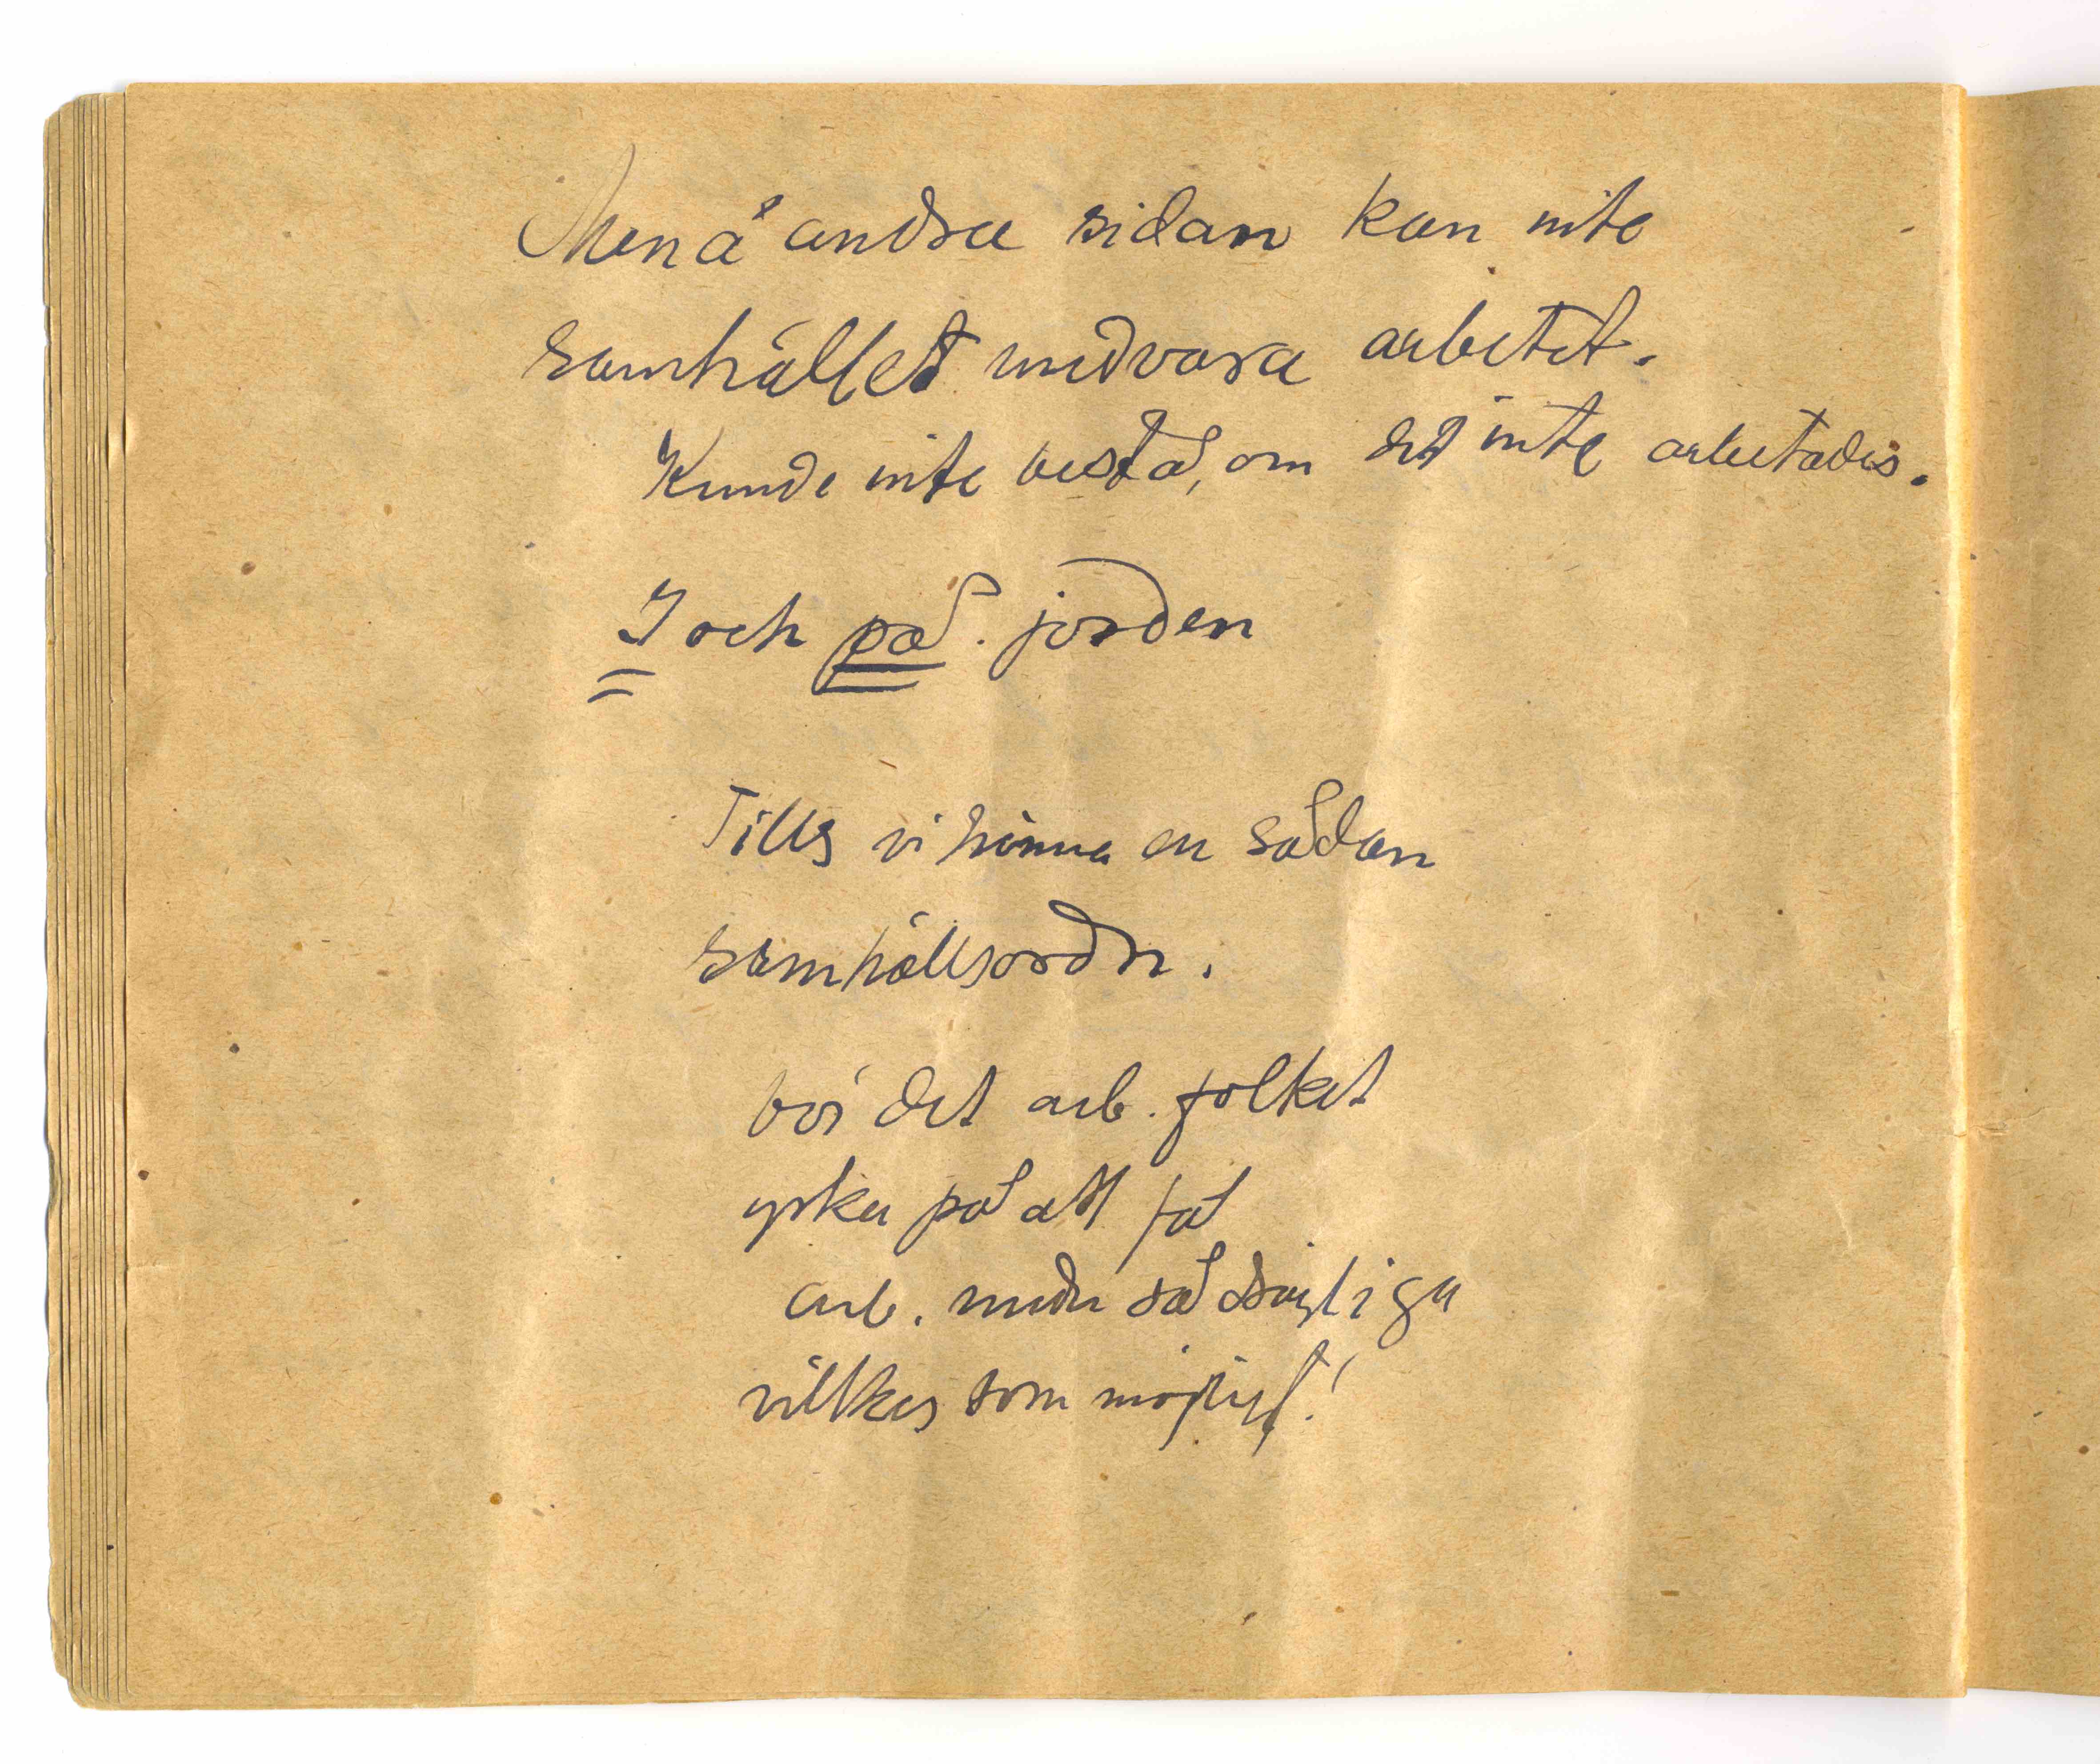 Men å andra sidan kan inte
samhället undvara arbetet.
Kunde inte bestå, om det inte arbetades.
I och på jorden
Tills vi hinna en sådan
samhällsordn.
bör det arb. folket
yrka på att få
arb. under så drägliga
villkor som möjligt!